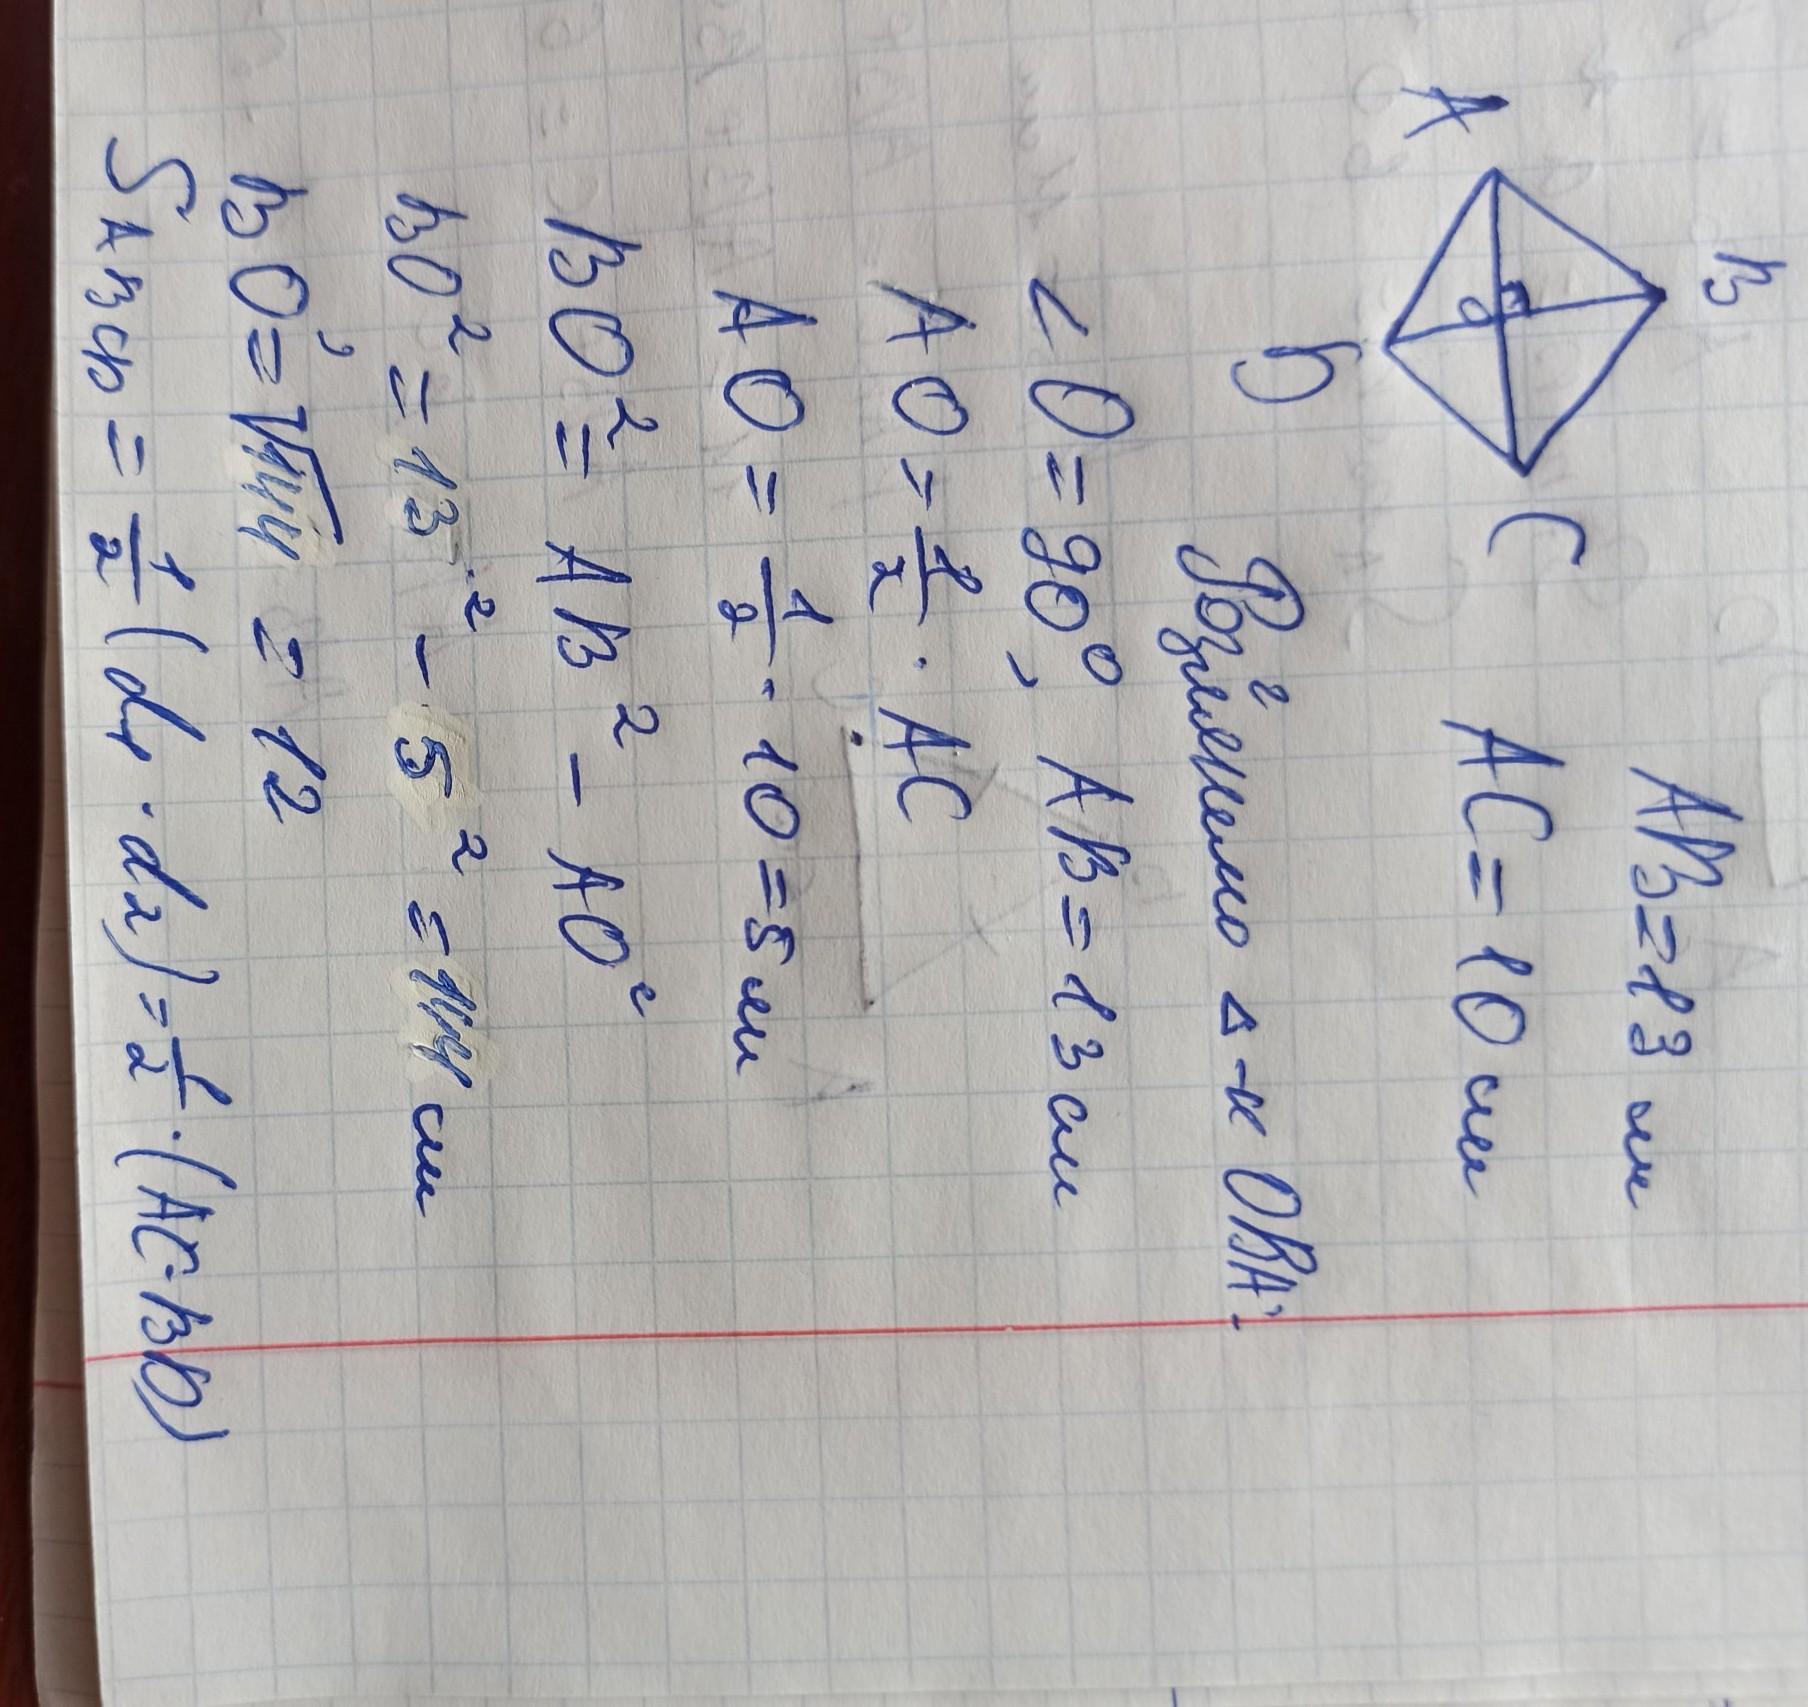 B
A
C
D
O
AB=13 см
AC=10 см
Розглянемо Δ-к OBA:
<O=90°, AB=13 см
AO=1/2·AC
AO=1/2·10=5 см
BO²=AB²-AO²
BO²=13²-5²=144 см
BO=√144=12
S ABCD=1/2(d1·d2)=1/2·(AC·BD)